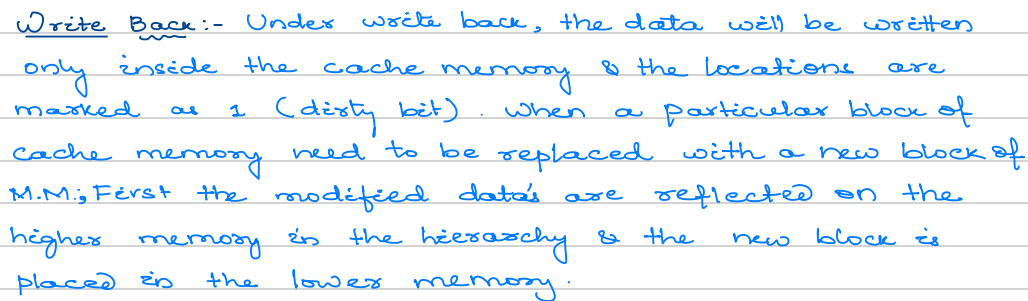 Write Back :- Under write back, the data will be written
only inside the cache memory & the locations are
marked as 1 (dirty bit). When a particular block of
cache memory need to be replaced with a new block of
M.M.; First the modified data's are reflected on the
higher memory in the hierarchy & the new block is
placed in the lower memory.